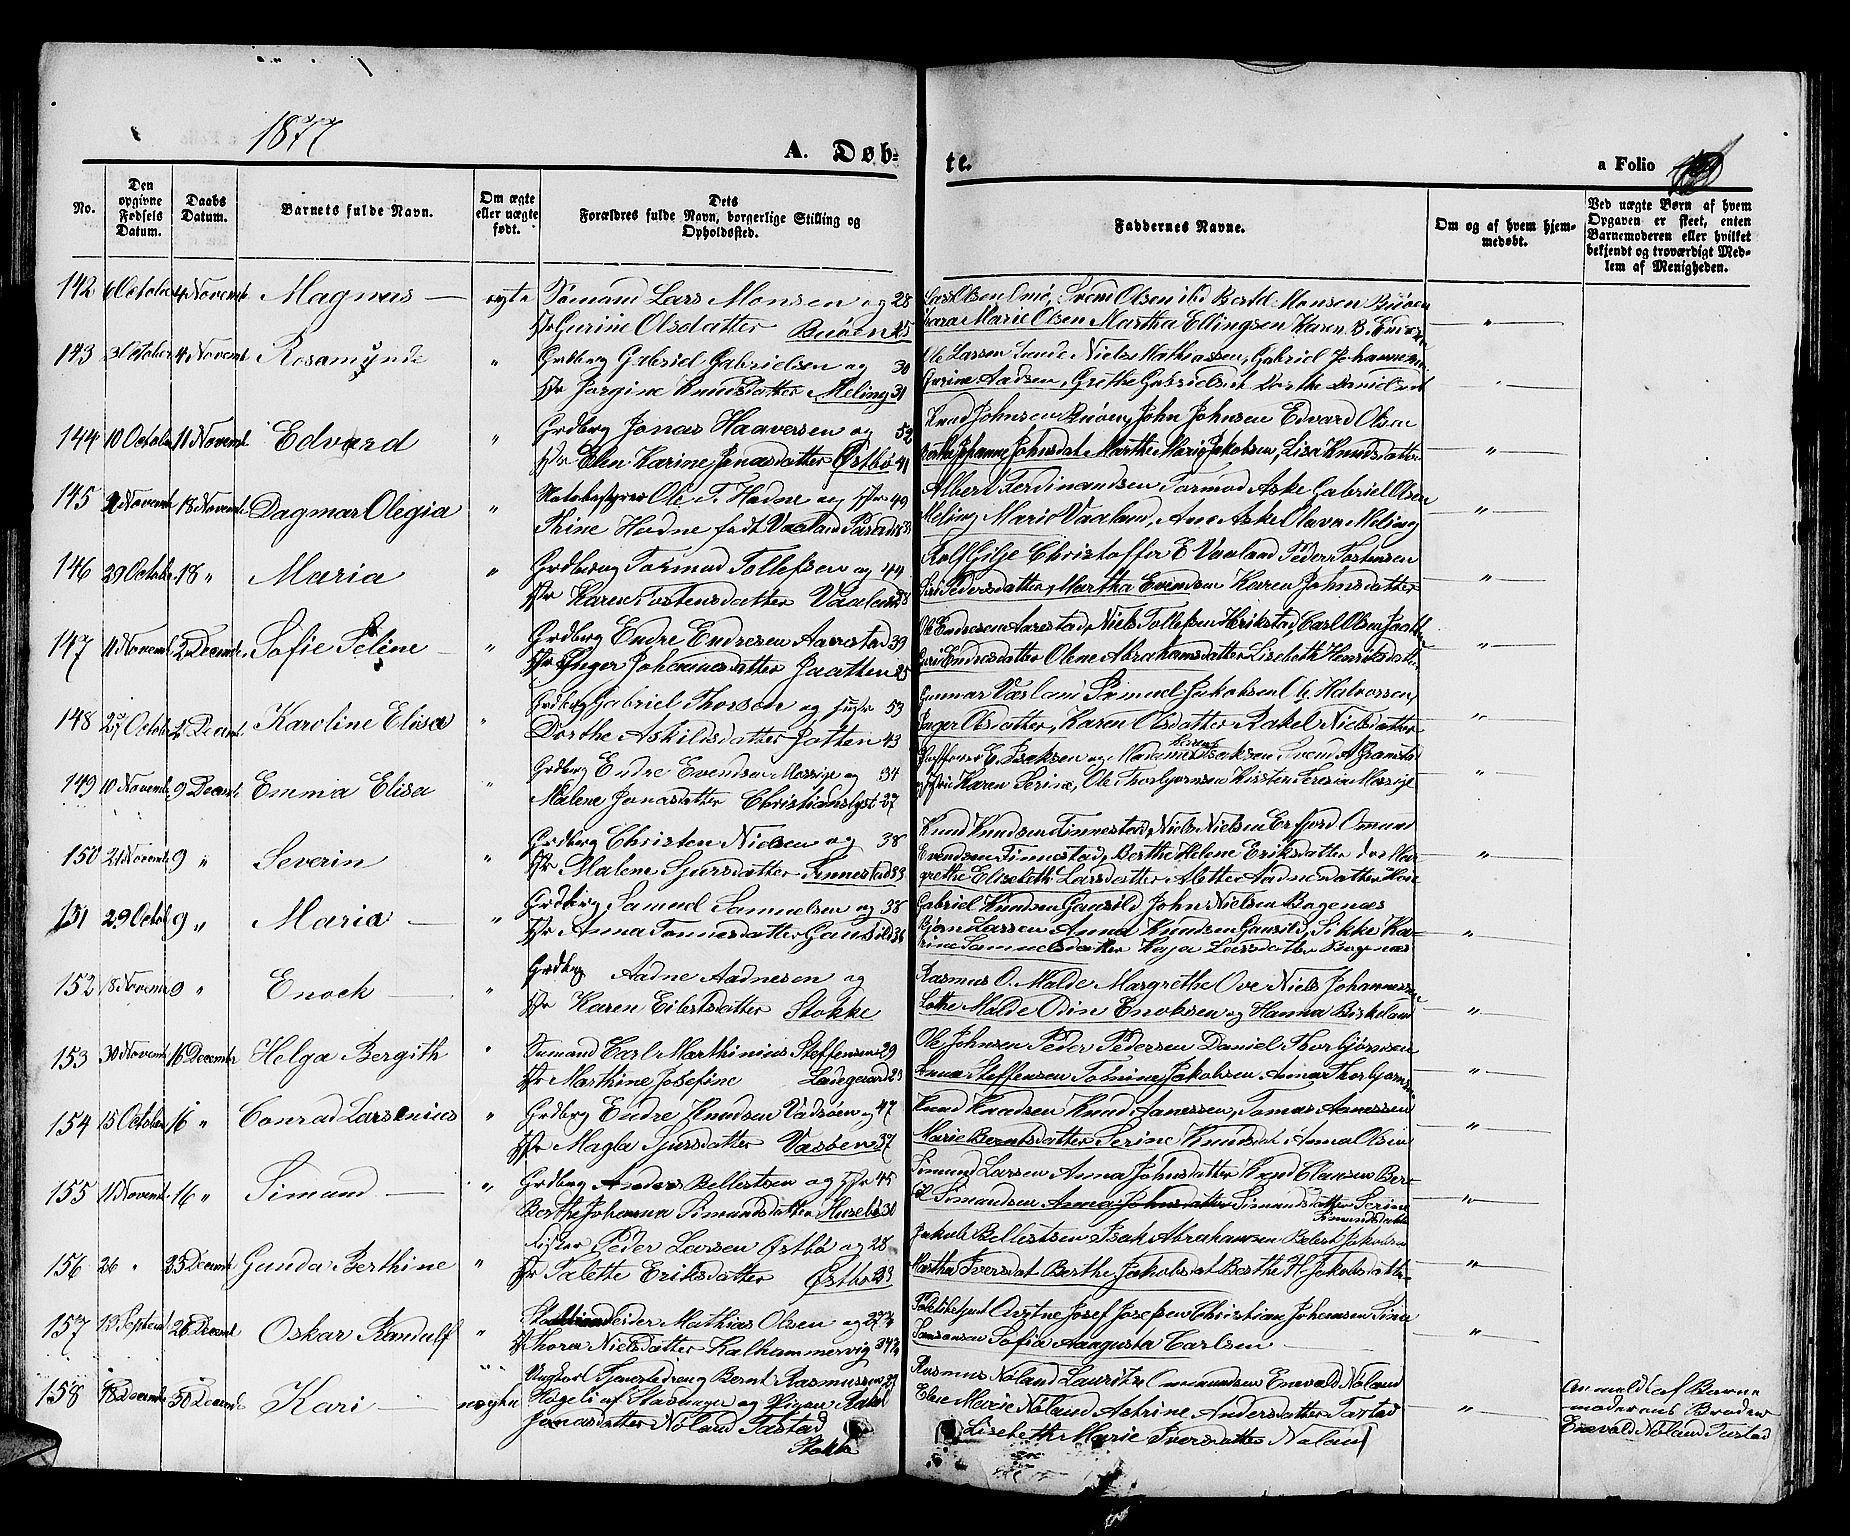 1877
A. Døb-
te.
a Folio
No.
Den opgivne Fødsels Datum.
Daabs Datum.
Barnets fulde Navn.
Om ægte eller uægte født.
Dets Forældres fulde Navn, borgerlige Stilling og Opholdssted.
Faddernes Navne.
Om og af hvem hjemmedøbt.
Ved uægte Børn af hvem Opgaven er skeet, enten Barnemoderen eller hvilket bekjendt og troværdigt Medlem af Menigheden.
142 6 October 4 Novemb. Magnus ægte Sømand Lars Monsen og 28
Hr Gurine Olsdatter Buøen 25
Svend Olsen ibd Bertel Monsen Buøen
Marie Olsen Martha Ellingsen Karen B.
143 3 October 4 Novemb. Rosamunde " Grdbrg Gabriel Gabrielsen og 30
Hr Jorgine Knudsdatter Meling 31
Ole Larsen Sunde Niels Mathiassen, Gabriel Johannesen
Gurine Aadsen, Grethe Gabrielsdt Dorthe Danielsdt
144 10 October 11 Novemb. Edvard " Grdbrg Jonas Haaversen og 52
Hr Elen Karine Jonasdatter Østbø 41
Knud Johnsen Buøen, John Johnsen Edvard Olsen
Berthe Johanne Johnsdat Marthe Marie Jakobsen, Lisa Knudsdatter
145 Novemb 18 Novemb. Dagmar Olegia " Ole T. Hodne og Hr 49
Thine Hodne født Vaaland
Albert Ferdinandsen Tormod Aske Gabriel Olsen
Meling Marie Vaaland, Ane Aske Olava Meling
146 29 October 18 " Maria " Grdbrg Tormod Tollefsen og 44
Hr Karen Tostensdatter Vaaland 38
Rolf Gilje Christoffer E Vaaland Peder Tostensen
Pedersdatter, Martha Evendsen Karen Johnsdatter
147 11 Novemb 2 Decemb. Sofie Seline " Grdbrg Endre Endresen Aarrestad 39
Hr Inger Johannesdatter Jaatten 25
Ole Endresen Aarestad, Niels Tollefsen Herikstad, Carl Olsen Jaatten
Guri Endresdatter Olene Abrahamsdatter Lisebeth Henriksdatter
148 27 October 2 Decemb. Karoline Elisa " Grdbrg Gabriel Thorsen og Hustr 53
Dorthe Askildsdatter Jotten 43
Gunnar Vaaland Samuel Jakobsen Ole Halvorsen,
Inger Olsdatter, Karen Olsdatter Rakel Nielsdatter
149 10 Novemb 9 Decemb. Emma Elisa " Grdbrg Endre Evendsen Mossige og 34
Malene Jonasdatter Christianslyst 27
E. Isaksen og Madame Isaksen Svend A Gramstad
og Hr Karen Serine, Ole Thorbjørnsen Kirsten Seresia Mossige
150 21 Novemb 9 " Severin " Grdbrg Christen Nielsen og 38
Hr Malene Sjursdatter Finnestad 33
Knud Knudsen Finnestad, Niels Nielsen Erfjord Omund
Evendsen Finnestad, Berthe Helene Eriksdatter Mar-
grethe Elisebeth Larsdatter Alethe Aadnesdatter
151 29 Octob 9 " Maria " Grdbrg Samuel Samuelsen og 38
Hr Anna Tønnesdatter Gausild 36
Gabriel Knudsen Gausild John Nielsen Bogenæs
Bjørn Larsen Anna Knudsen Gausild, Sikke Ka-
rine Samuelsdatter Kaja Larsdatter Bogenæs
152 18 Novemb 9 " Enock " Grdbrg Aadne Aadnesen og
Hr Karen Eilertsdatter Stokke
Rasmus O. Malde Margrethe Ove Niels Johannessen
Lotte Malde Odin Enoksen og Hanna Birkeland
153 30 Novemb 16 Decemb Helga Bergith " Sømand Karl Marthinius Steffensen 29
Hr Marthine Josefine Ladegaard 23
Ole Johnsen Peder Pedersen Daniel Thorbjørnsen
Anna Steffensen Tobine Jakobsen Anna Thorbjørnsen
154 15 October 16 " Conrad Larsenius " Grdbrg Endre Knudsen Vadsøen og 47
Hr Magla Sjursdatter 37
Knud Knudsen Knud Aanessen, Tomas Aanessen
Marie Berntsdatter Serine Knudsdat Anna Olsen
155 11 Novemb 16 " Simund " Grdbrg Anders Bellestsen og Hr 45
Berthe Johanna Simundsdatter Husebø 30
Simund Larsen Anna Johnsdatter Knud Clausen Ber-
til Simundsen Anna Johnsdatter Simundsdatter Serine
Simundsdatter
156 26 " 25 Decemb Gunda Berthine " Fisker Peder Larsen Østbø og 28
Hr Talette Eriksdatter Østbø 23
Jakob Bellestsen Isak Abrahamsen Belest Jakobsen
Martha Iversdat Berthe Jakobsdat Berthe H. Jakobsdatter
157 12 Septemb 26 Decemb Oskar Randulf " Mathias Olsen og
Hr Thora Nielsdatter Kalhammervig
Josef Josefsen Christian Johansen Sina
Sofia Augusta Carlsen
158 18 Decemb 30 Decemb Kari uægte Ungkarl Tjenestedreng Bernt Rasmussen
af Stavanger og Pigen Rakel
Jonasdatter Nøland Tastad
Stokke
Rasmus Nøland Lauritz Enevald Nøland
Elne Marie Nøland Astrine Andersdatter Tastad
Lisebeth Marie Iversdatter Nøland
Anmeldt af Barne-
moderens Broder
Enevald Nøland Tastad